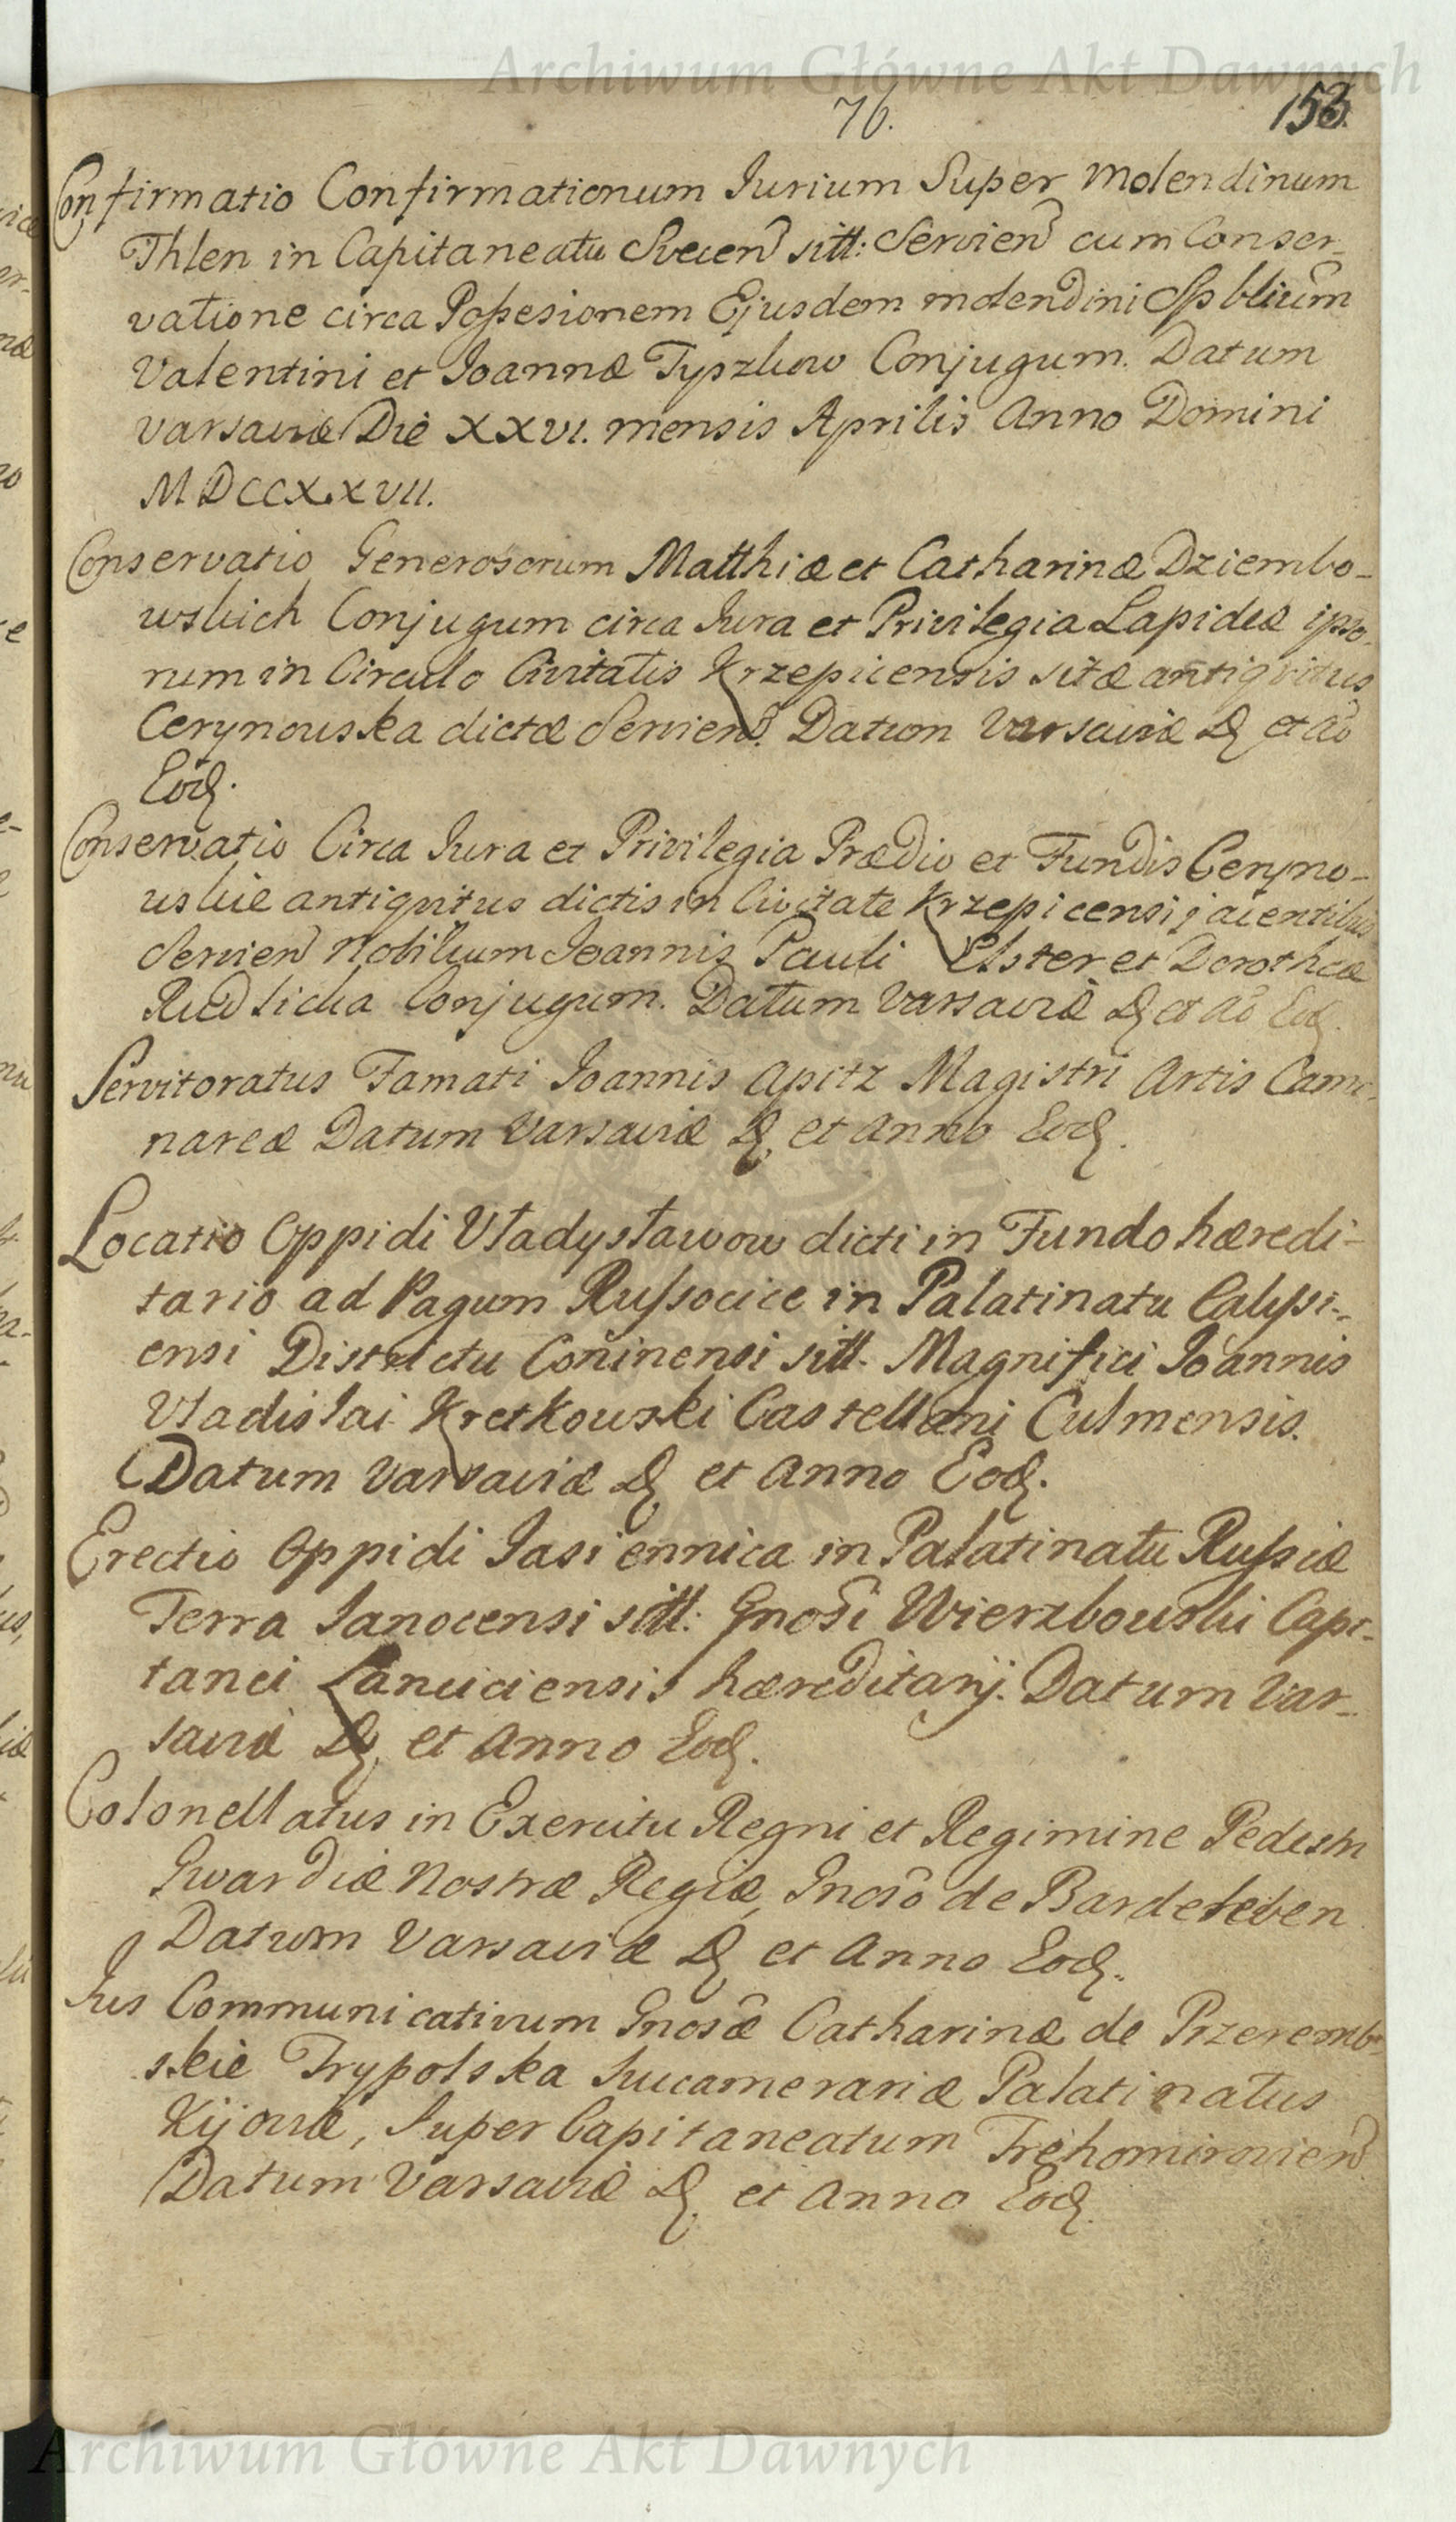 Archiwum Główne Akt Dawnych
76. 153.
Confirmatio Confirmationum Jurium Super Molendinum
Thlen in Capitaneatu Svecen sitt: Servien cum Conser-
vatione circa Possesionem Ejusdem molendini Spblium
Valentini et Joannæ Typzkow Conjugum. Datum
Varsaviæ Die XXVI. mensis Aprilis Anno Domini
MDCCXXVII.
Conservatio Generosorum Matthiæ et Catharinæ Dziembo-
wskich Conjugum circa Jura et Privilegia Lapideæ ipso-
rum in Circulo Civitatis Krzepicensis sitæ antiquitus
Cerynouska dictæ Servien. Datum Varsaviæ D et Ao
Eod.
Conservatio Circa Jura et Privilegia Prædio et Fundis Ceryno-
uskie antiquitus dictis in Civitate Krzepicensi jacentibus
Servien Nobilium Joannis Pauli Elster et Dorotheæ
Conjugum. Datum Varsaviæ D et Ao Eod.
Servitoratus Famati Joannis Apitz Magistri Artis Came-
nareæ Datum Varsaviæ D et Anno Eod.
Locatio Oppidi Vładysławow dicti in Fundo hæredi-
tario ad Pagum Russocice in Palatinatu Calissi-
ensi Districtu Coninensi sitt. Magnifici Joannis
Vladislai Kretkouski Castellani Culmensis.
Datum Varsaviæ D et Anno Eod.
Erectio Oppidi Jasiennica in Palatinatu Russiæ
Terra Sanocensi sitt: Gnosi Wierzbouski Capi-
tanei Lanciciensis hæreditarij. Datum Var-
saviæ D et Anno Eod.
Colonellatus in Exercitu Regni et Regimine Pedestri
Gwardiæ Nostræ Regiæ, Gnoso de Bardeleben
Datum Varsaviæ D et Anno Eod.
Jus Communicativum Gnosæ Catharinæ de Przerembs-
skie Trypolska Succamerariæ Palatinatus
Kijoviæ, Super Capitaneatum Trehomirovien
Datum Varsaviæ D et Anno Eod.
Archiwum Główne Akt Dawnych